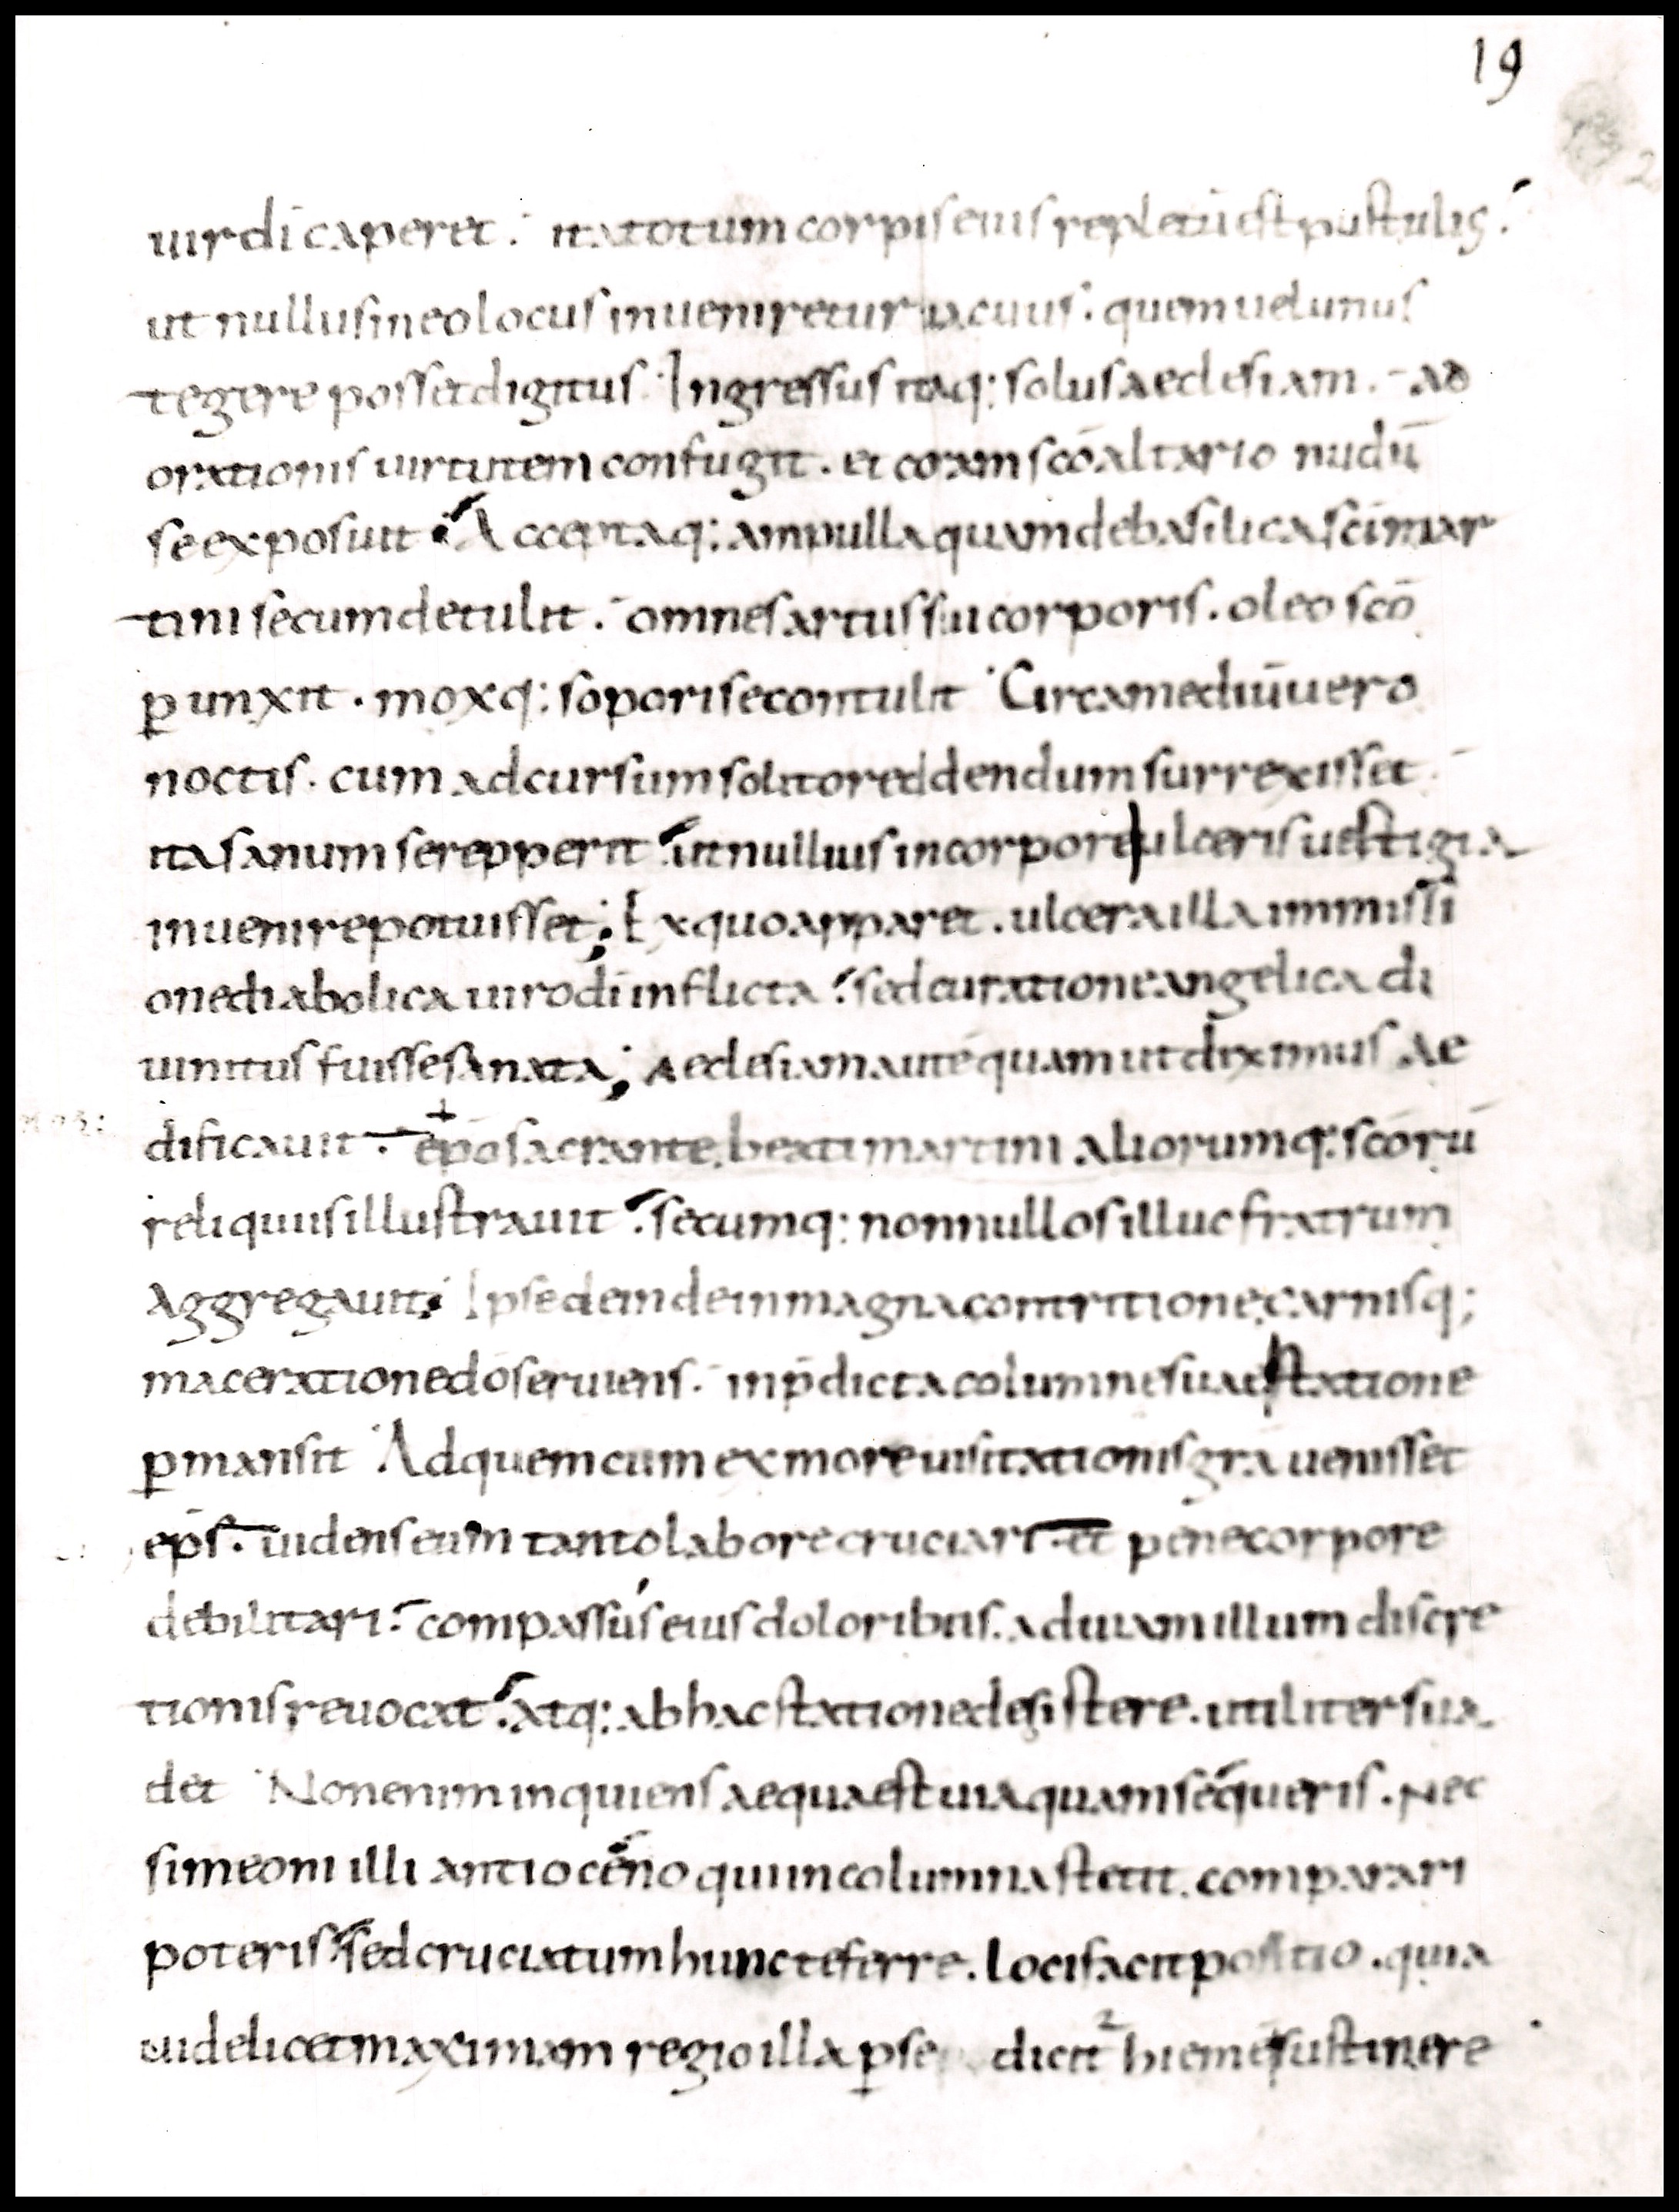 19
uir dī caperet. ita totum corpus eius repletū est pustulis.
ut nullus in eo locus inueniretur uacuus. quem uel unus
tegere posset digitus. Ingressus itaq: solus aeclesiam. ad
orationis uirtutem confugit. et coram scō altario nudū
se exposuit. Acceptaq: ampulla quam de basilica scī mar
tini secum detulit. omnes artus sui corporis. oleo scō
ꝑunxit. moxq: sopori se contulit. Circa mediū uero
noctis. cum ad cursum solito reddendum surrexisset.
ita sanum se repperit. ut nullius in corpore ulceris uestigia
inuenire potuisset; Ex quo apparet. ulcera illa immissi
one diabolica uiro dī inflicta. sed curatione angelica di
uinitus fuisse sanata; aeclesiam autē quam ut diximus ae
dificauit. epō sacrante. beati martini aliorumq: scōrū
reliquiis illustrauit. secumq: nonnullos illuc fratrum
Aggregauit. Ipse deinde in magna contritione carnisq;
maceratione dō seruiens. in p̄dicta columnę suae statione
ꝑmansit. Ad quem cum ex more uisitationis grā uenisset
ep̄s. uidens eum tanto labore cruciari. et pene corpore
debilitari. compassus eius doloribus. ad uiam illum discre
tionis reuocat. atq: ab hac statione desistere. utiliter sua
det. Non enim inquiens aequa est uia quam sequeris. Nec
simeoni illi antioceno qui in columna stetit. comparari
poteris. sed cruciatum hunc te ferre. loci facit positio. quia
uidelicet maximam regio illa ꝑse dicit hiemē sustinere